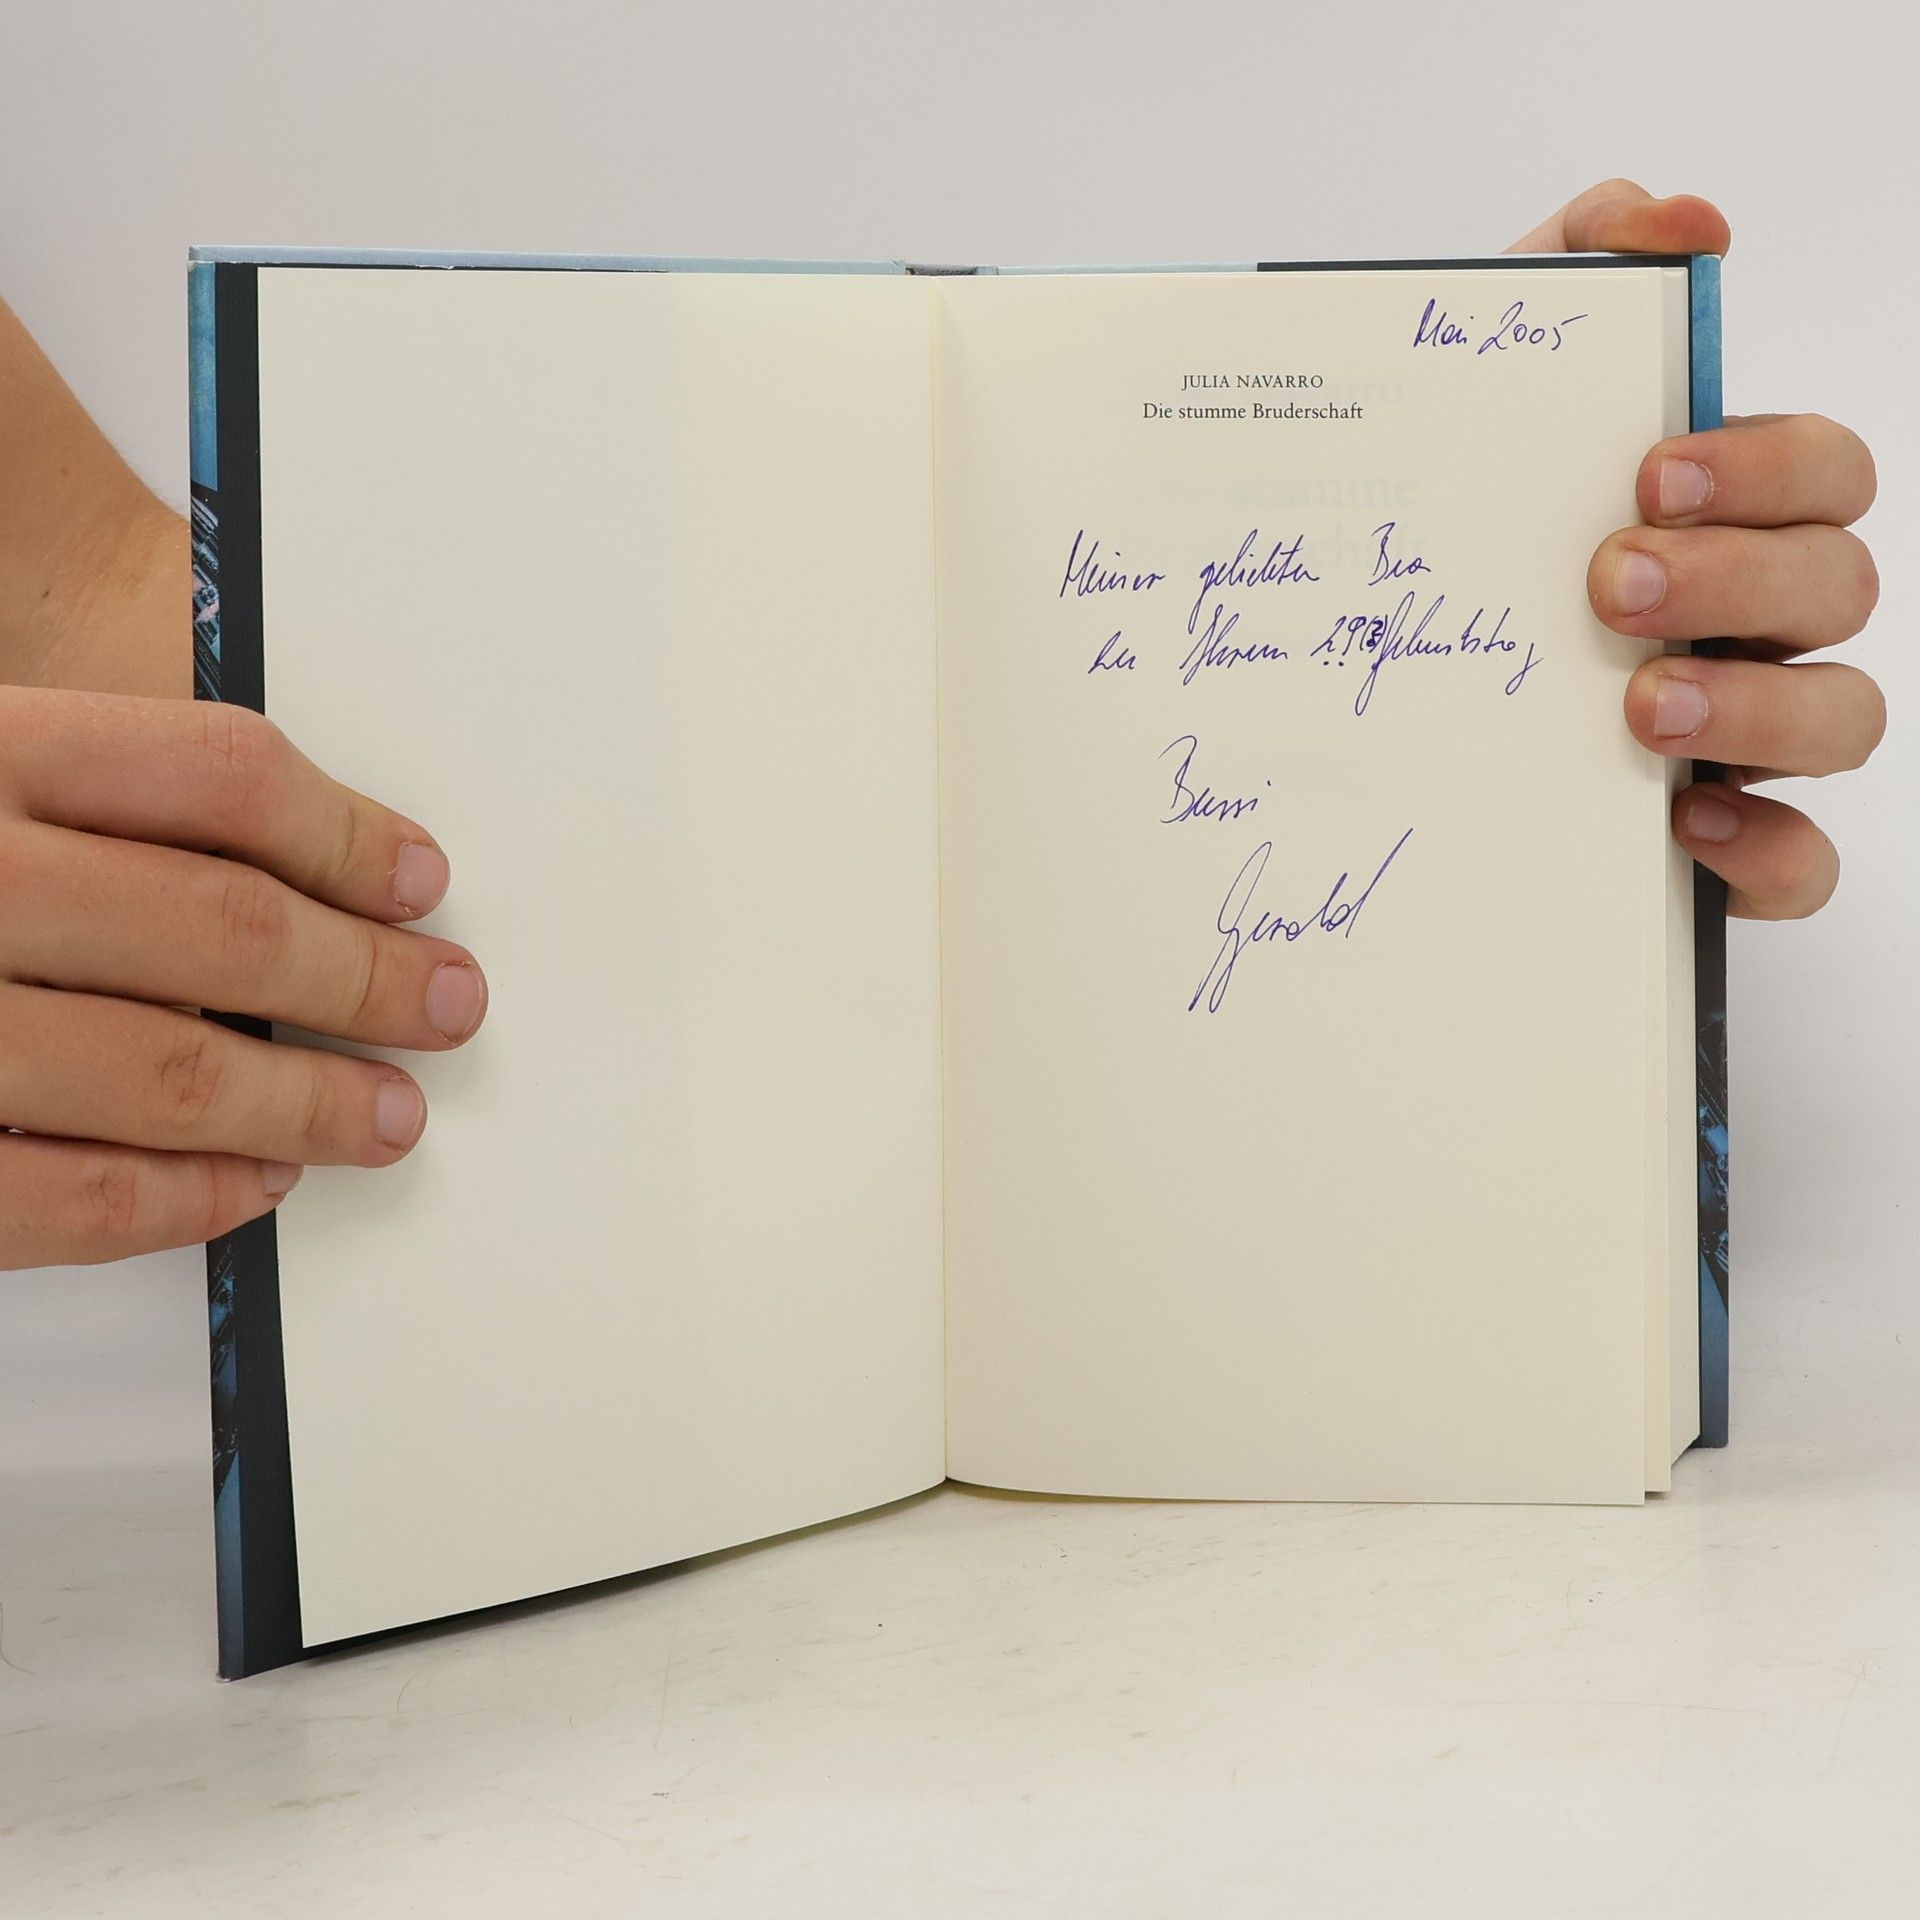 Mai 2005
JULIA NAVARRO
Die stumme Bruderschaft
Meiner geliebten Bea
zu Ihrem 29(?) Geburtstag
Bussi
Gerald